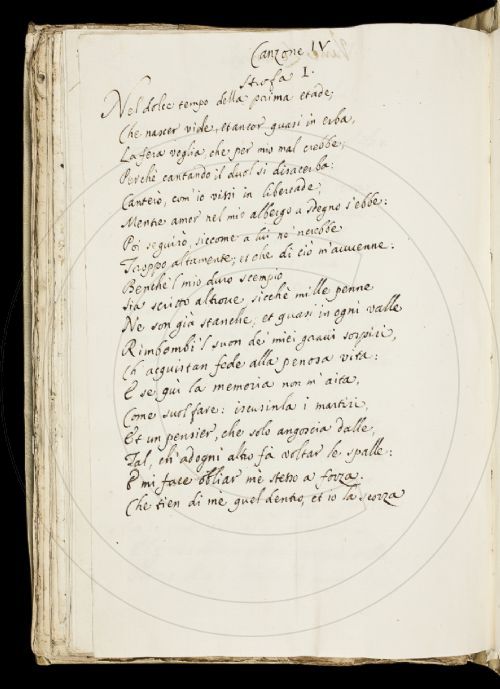 Canzone IV
Strofa I.
Nel dolce tempo della prima etade;
Che nascer vide, et ancor quasi in erba,
La fera voglia, che per mio mal crebbe;
Perchè cantando il duol si disacerba:
Canterò, com'io vissi in libertade;
Mentre amor nel mio albergo a sdegno s'ebbe:
Poi seguirò, siccome a lui ne 'ncrebbe
Troppo altamente; et che di ciò m'avvenne:
Benchè 'l mio duro scempio
Sia scritto altrove, sicchè mille penne
Ne son già stanche; et quasi in ogni valle
Rimbombi 'l suon de miei gravi sospiri,
Ch' acquistan fede alla penosa vita:
E se quì la memoria non m' aita,
Come suol fare: iscusinla i martiri,
Et un pensier, che solo angoscia dalle,
Tal, ch' adogni altro fà voltar le spalle:
E mi face obliar me stesso a forza.
Che tien di mè quel dentro, et io la scorza